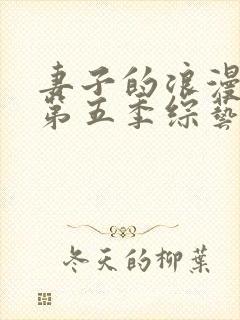 妻子的浪漫
第五季综藝
冬天的柳葉